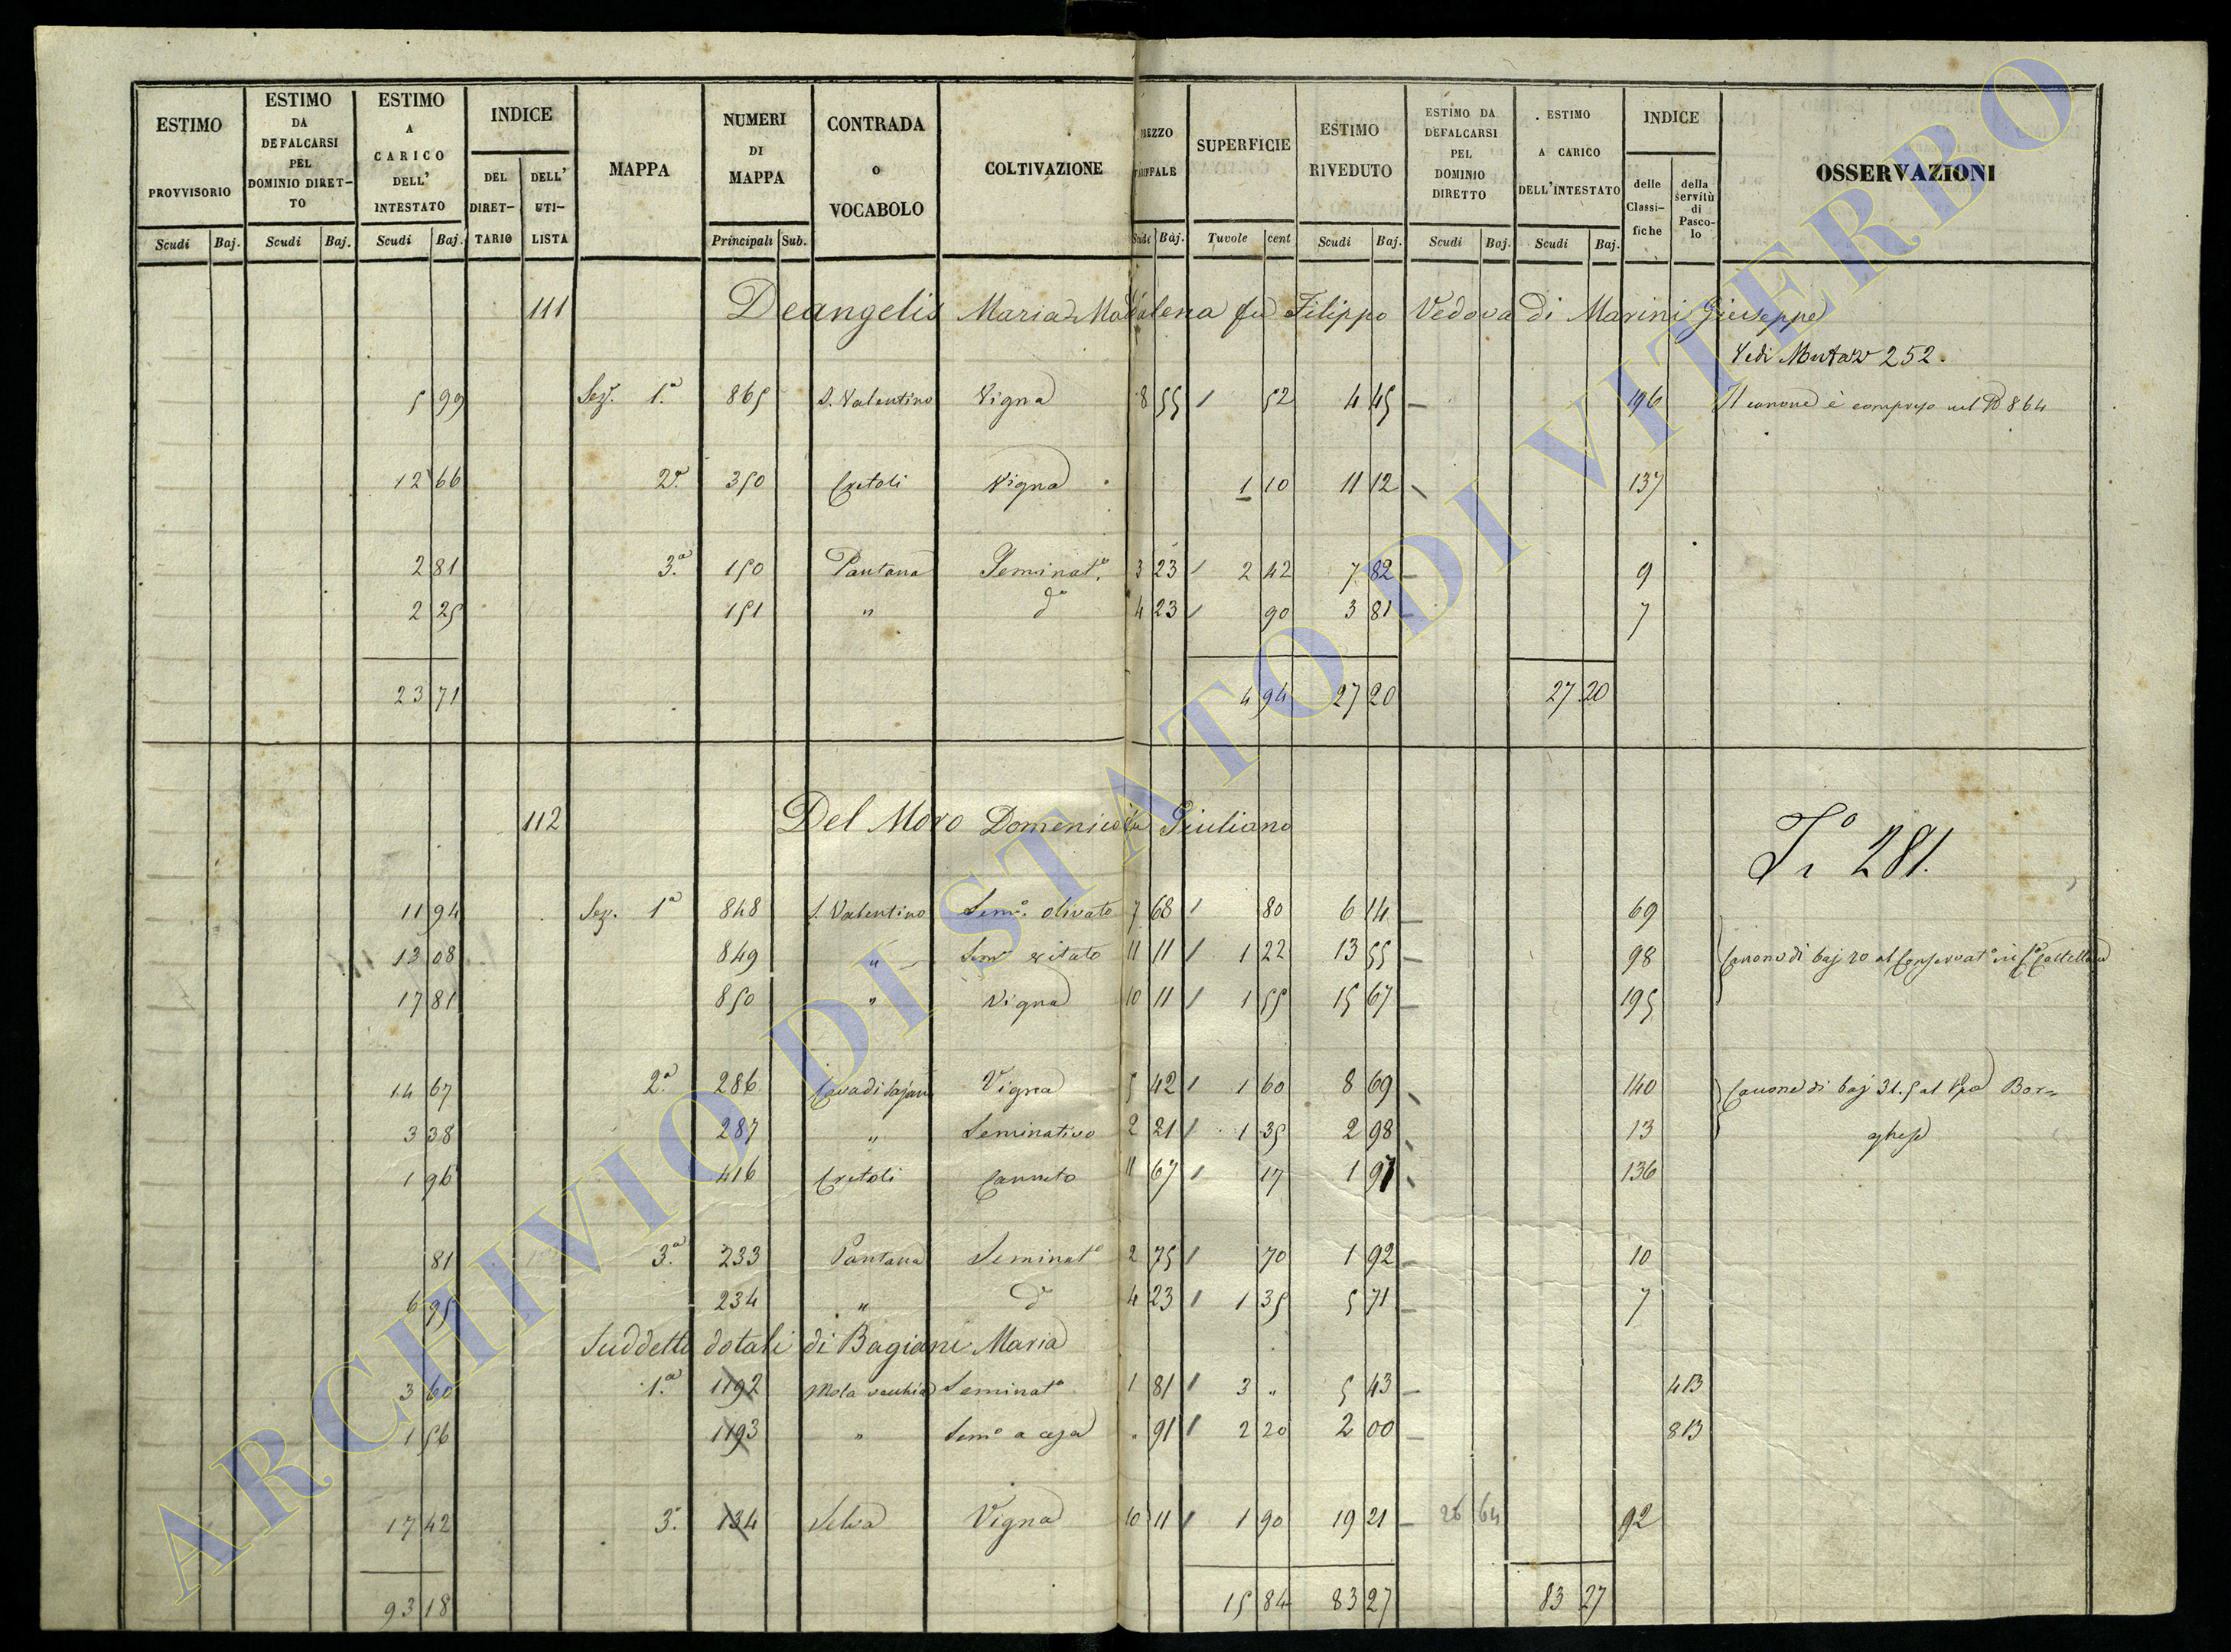 ESTIMO PROVVISORIO Scudi Baj.
ESTIMO DA DEFALCARSI PEL DOMINIO DIRET-TO Scudi Baj.
ESTIMO A CARICO DELL' INTESTATO Scudi Baj.
INDICE DEL DIRET-TARIO DELL' UTI-LISTA
MAPPA
NUMERI DI MAPPA Principali Sub.
CONTRADA o VOCABOLO
COLTIVAZIONE
PREZZO TARIFFALE Scudi Baj.
SUPERFICIE Tavole cent
ESTIMO RIVEDUTO Scudi Baj.
ESTIMO DA DEFALCARSI PEL DOMINIO DIRETTO Scudi Baj.
ESTIMO A CARICO DELL'INTESTATO Scudi Baj.
INDICE delle Classi-fiche della servitù di Pasco-lo
OSSERVAZIONI
111 Deangelis Maria Madalena fu Filippo Vedova di Marini Giuseppe
Vedi Mutaz 252.
5 99 Sez. 1.a 865 S. Valentino Vigna 8 55 / 52 4 45 — 196 Il canone è compreso nel N 864
12 66 2.a 350 Cretoli Vigna 1 10 11 12 137
2 81 3.a 150 Pantana Seminat.o 3 23 / 2 42 7 82 — 9
2 25 151 " do 4 23 / 90 3 81 — 7
23 71 4 94 27 20 27 20
112 Del Moro Domenico fu Giuliano
281.
11 94 Sez. 1a 848 S. Valentino Semo. olivato 7 68 / 80 6 14 — 69
13 08 849 " Semo vitato 11 11 / 1 22 13 55 — 98 Canone di baj 20 al Conservato
17 81 850 " Vigna 10 11 / 1 55 15 67 — 195
14 67 2.a 286 Cava di Vigna 5 42 / 1 60 8 69 140 Canone di baj 31.5 al Bor=
3 38 287 " Seminativo 2 21 / 1 35 2 98 13 ghese
1 96 416 Cretoli Canneto 11 67 / 17 1 97 136
81 3.a 233 Pantana Seminato 2 75 / 70 1 92 — 10
6 95 234 " do 4 23 / 1 35 5 71 — 7
Suddetto dotali di Bagiani Maria
3 60 1.a 1192 Mola vecchia Seminato 1 81 / 3 " 5 43 — 4B
1 56 1193 " Semo a " 91 / 2 20 2 00 — 8B
17 42 3. 134 Selva Vigna 10 11 / 1 90 19 21 — 26 64 92
93 18 15 84 83 27 83 27
ARCHIVIO DI STATO DI VITERBO